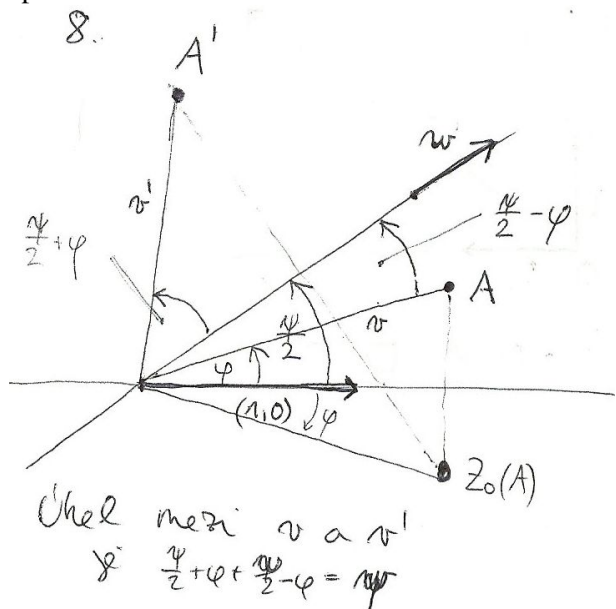 8.
A'
w
v'
ψ/2 + φ
ψ/2 - φ
A
v
ψ/2
φ
(1,0)
φ
Z₀(A)
Úhel mezi v a v'
je ψ/2 + φ + ψ/2 - φ = ψ